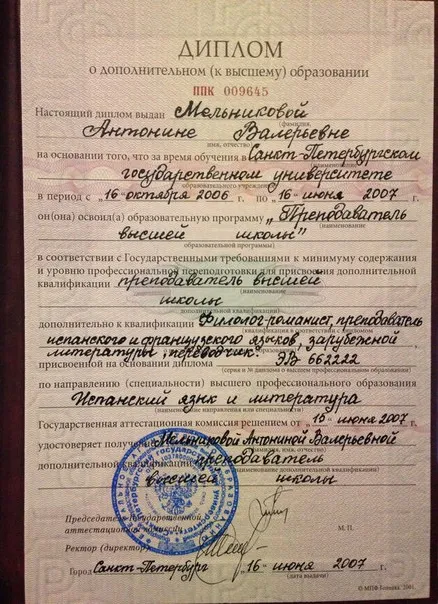 ДИПЛОМ
о дополнительном (к высшему) образовании
ППК 009645
Настоящий диплом выдан Мельниковой
(фамилия,
Антонине Валерьевне
имя, отчество)
на основании того, что за время обучения в Санкт-Петербургском
(наименование
государственном университете
образовательного учреждения)
в период с „16 октября 2006 г. по „16 июня 2007 г.
он(она) освоил(а) образовательную программу „Преподаватель
(наименование
высшей школы"
образовательной программы)
в соответствии с Государственными требованиями к минимуму содержания
и уровню профессиональной переподготовки для присвоения дополнительной
квалификации преподаватель высшей
(наименование
школы
дополнительной квалификации)
дополнительно к квалификации Филолог-романист, преподаватель
испанского и французского языков, зарубежной
литературы, переводчик.
присвоенной на основании диплома ЭВ 662222
(серия и № диплома о высшем профессиональном образовании)
по направлению (специальности) высшего профессионального образования
Испанский язык и литература
(наименование направления или специальности)
Государственная аттестационная комиссия решением от „16 июня 2007 г.
удостоверяет получение Мельниковой Антониной Валерьевной
(фамилия, имя, отчество)
дополнительной квалификации преподаватель
(наименование дополнительной квалификации)
высшей школы
Председатель Государственной
аттестационной комиссии
М. П.
Ректор (директор)
Город Санкт-Петербург „16 " июня 2007 г.
(дата выдачи)
© МПФ Гознака, 2001.